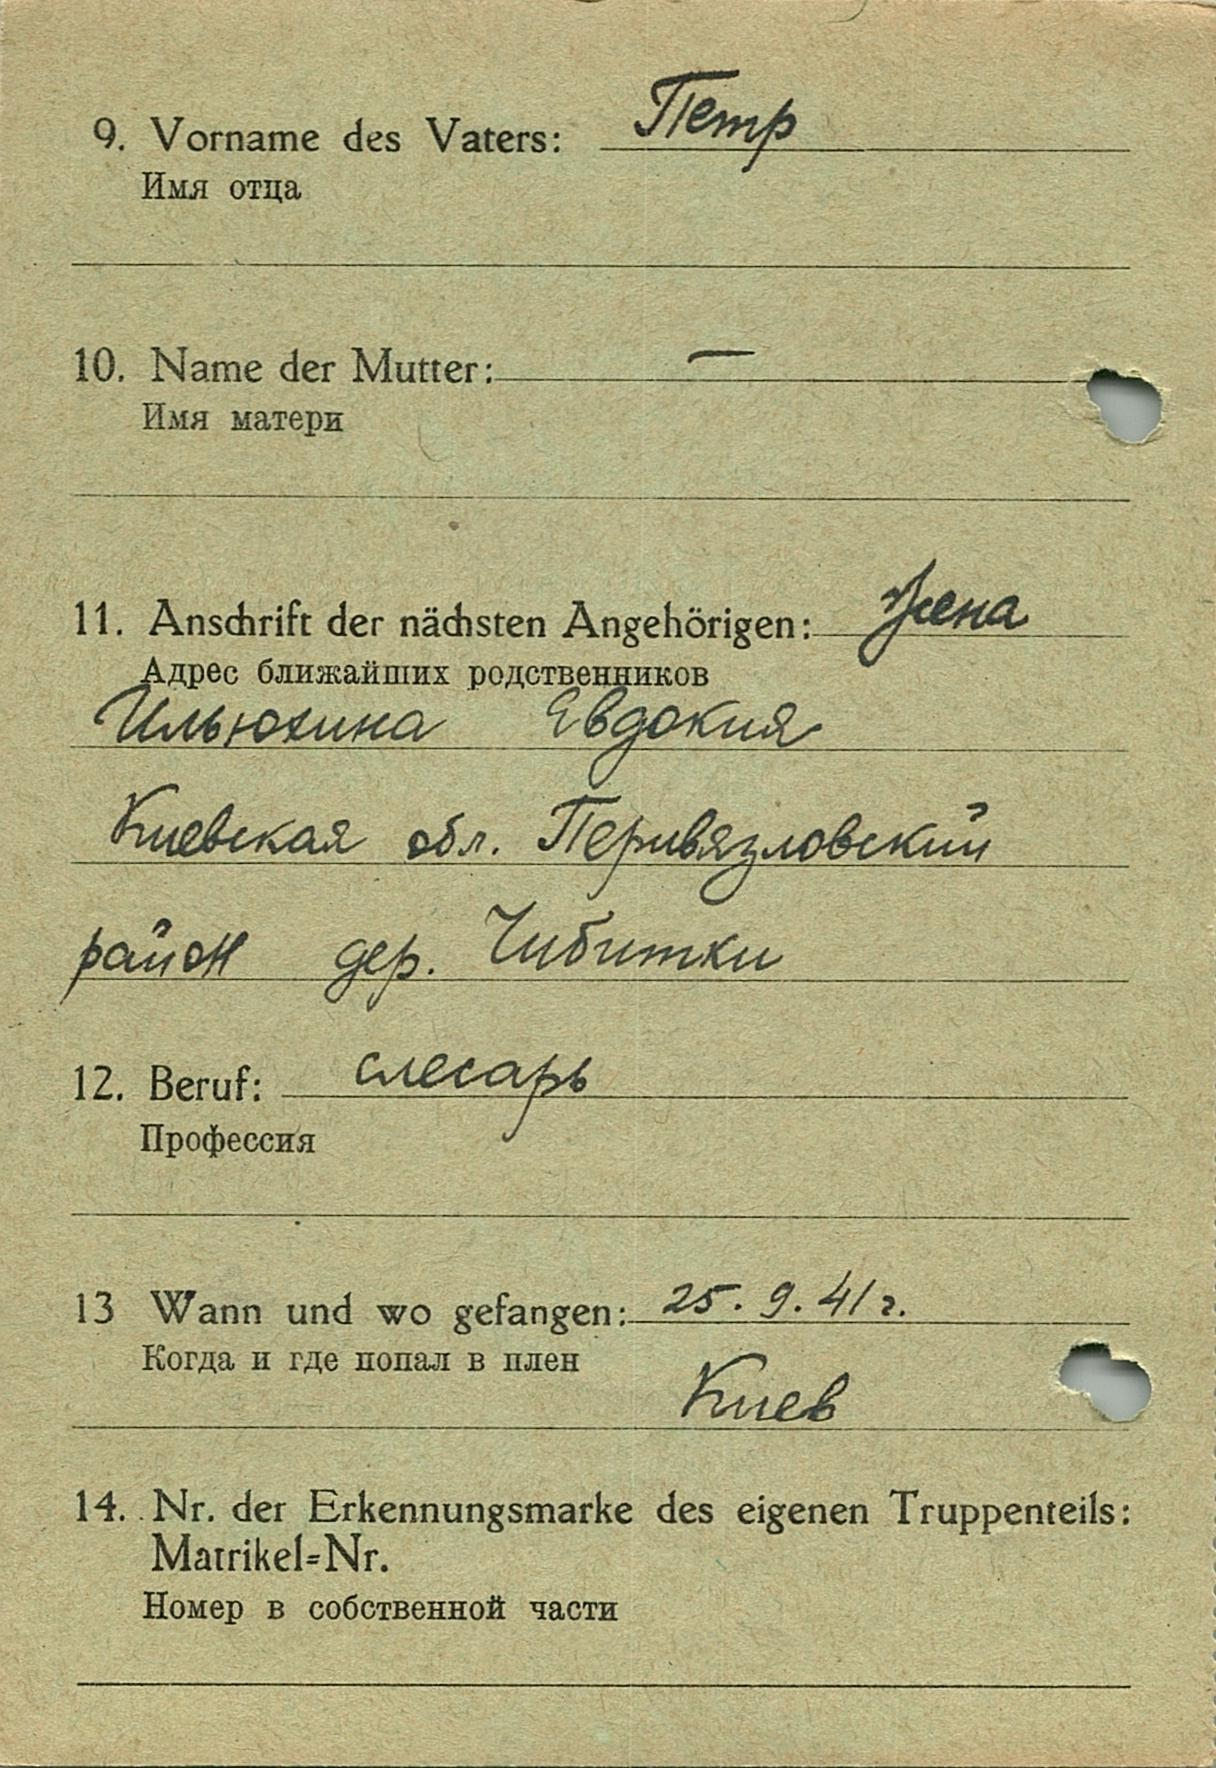 9. Vorname des Vaters: Петр
Имя отца
10. Name der Mutter: —
Имя матери
11. Anschrift der nächsten Angehörigen: жена
Адрес ближайших родственников
Ильюхина Евдокия
Киевская обл.Перивязловский
район дер. Чибитки
12. Beruf: слесарь
Профессия
13 Wann und wo gefangen: 25. 9. 41 г.
Когда и где попал в плен
Киев
14. Nr. der Erkennungsmarke des eigenen Truppenteils:
Matrikel=Nr.
Номер в собственной части